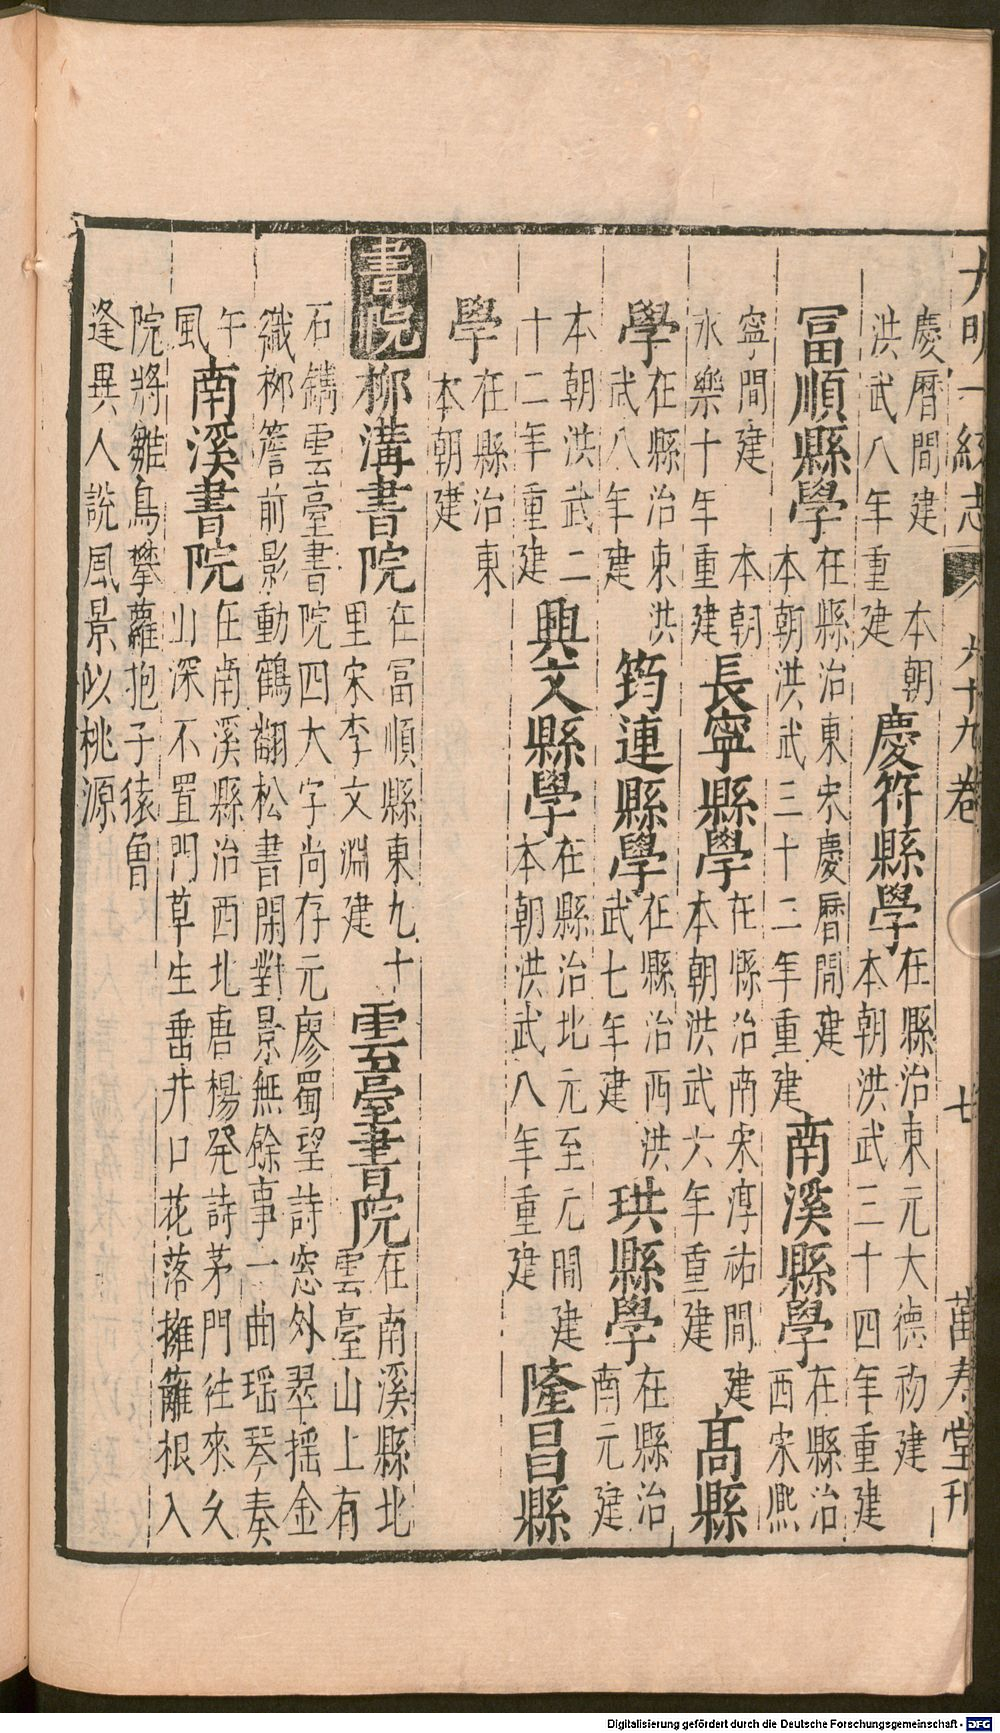 大明一統志 六十九卷 七 萬壽堂刊
慶曆間建 本朝
洪武八年重建
慶符縣學
在縣治東元大德初建
本朝洪武三十四年重建
冨順縣學
在縣治東宋慶曆間建
本朝洪武三十二年重建
南溪縣學
在縣治
西宋熈
寧間建 本朝
永樂十年重建
長寧縣學
在縣治南宋淳祐間建
本朝洪武六年重建
高縣
學
在縣治東洪
武八年建
筠連縣學
在縣治西洪
武七年建
珙縣學
在縣治
南元建
本朝洪武二
十二年重建
興文縣學
在縣治北元至元間建
本朝洪武八年重建
隆昌縣
學
在縣治東
本朝建
書院
柳溝書院
在冨順縣東九十
里宋李文淵建
雲臺書院
在南溪縣北
雲臺山上有
石鐫雲臺書院四大字尚存元廖蜀望詩窓外翠揺金
纎栁簷前影動鶴翻松書閑對景無餘事一曲瑶琴奏
午
風
南溪書院
在南溪縣治西北唐楊発詩茅門徃來久
山深不置門草生垂井口花落擁籬根入
院將雛鳥攀蘿抱子猿曾
逢異人說風景以桃源
Digitalisierung gefördert durch die Deutsche Forschungsgemeinschaft - DFG